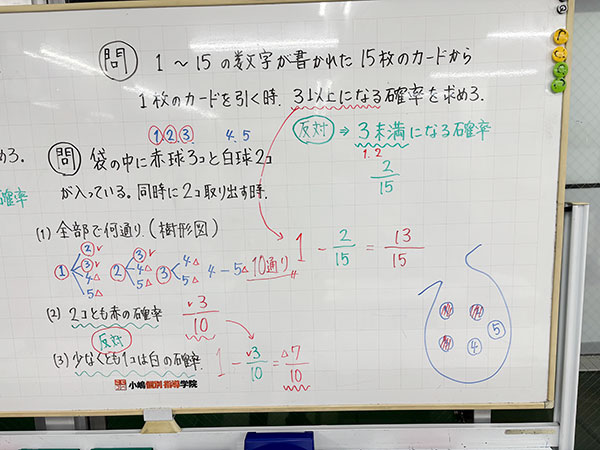 問 1～15の数文字が書かれた15枚のカードから
1枚のカードを引く時、3以上になる確率を求めよ.
反対 ⇒ 3未満になる確率
1. 2
2/15
1 - 2/15 = 13/15
める.
確率
①②③ 4. 5
問 袋の中に赤球3コと白球2コ
が入っている。同時に2コ取り出す時.
(1) 全部で何通り.(樹形図)
① ②✓ ③✓ 4△ 5△ ② ③✓ 4△ 5△ ③ 4△ 5△ 4-5△ 10通り
(2) 2コとも赤の確率 ✓3/10
反対
(3) 少なくとも1コは白の確率. 1 - ✓3/10 = △7/10
4 5
小嶋個別指導学院